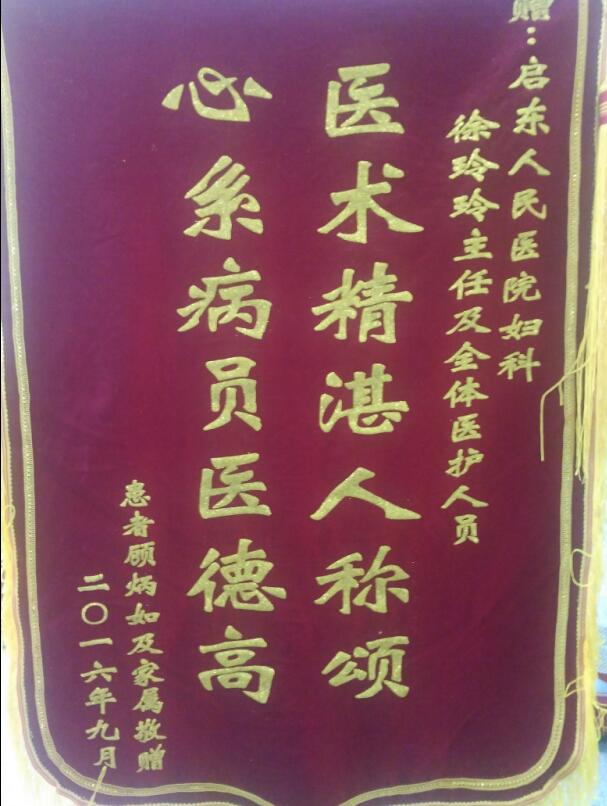 赠：启东人民医院妇科
徐玲玲主任及全体医护人员
医术精湛人称颂
心系病员医德高
患者顾炳如及家属敬赠
二〇一六年九月